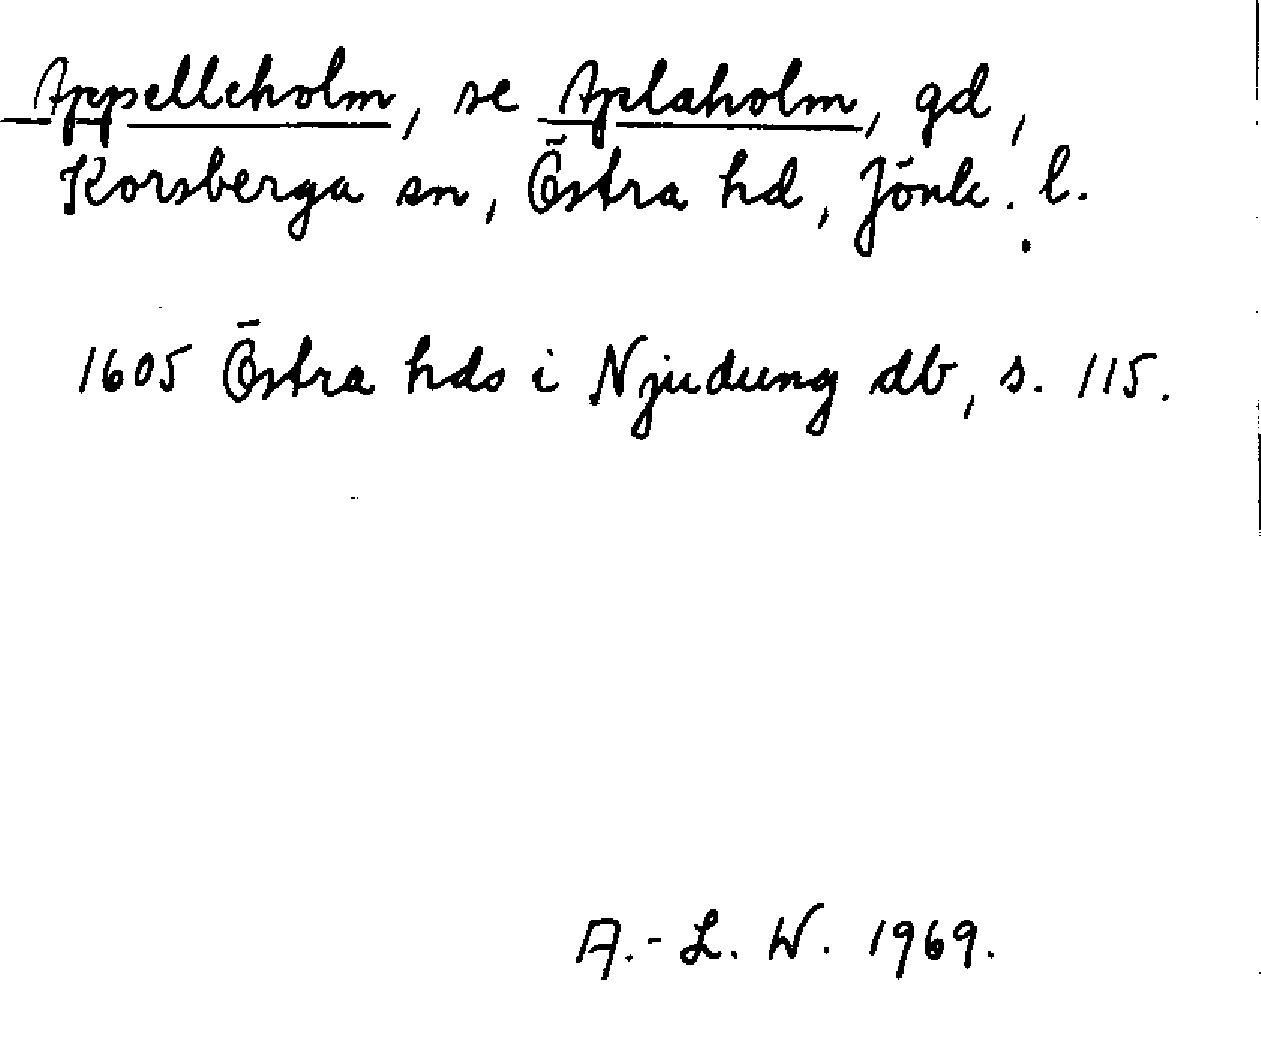 Appelleholm, se Aplaholm, gd,
Korsberga sn, Östra hd, Jönk. l.
1605 Östra hds i Njudung db, s. 115.
A.-L. W. 1969.